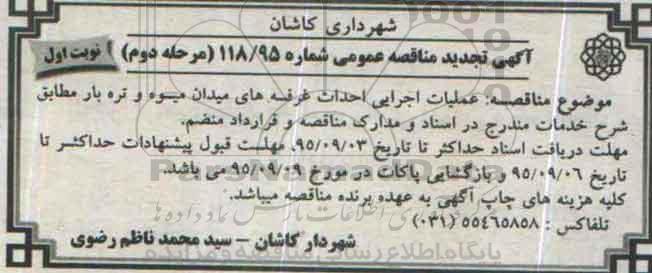 شهرداری کاشان
آگهی تجدید مناقصه عمومی شماره ۱۱۸/۹۵ (مرحله دوم) نوبت اول
موضوع مناقصه: عملیات اجرایی احداث غرفه های میدان میوه و تره بار مطابق
شرح خدمات مندرج در اسناد و مدارک مناقصه و قرارداد منضم.
مهلت دریافت اسناد حداکثر تا تاریخ ۹۵/۰۹/۰۳، مهلت قبول پیشنهادات حداکثر تا
تاریخ ۹۵/۰۹/۰۶ و بازگشایی پاکات در مورخ ۹۵/۰۹/۰۹ می باشد.
کلیه هزینه های چاپ آگهی به عهده برنده مناقصه میباشد.
تلفاکس : ۵۵٤٦٥٨٥٨ (۰۳۱)
شهردار کاشان – سید محمد ناظم رضوی
پایگاه اطلاع رسانی مناقصه و مزایده